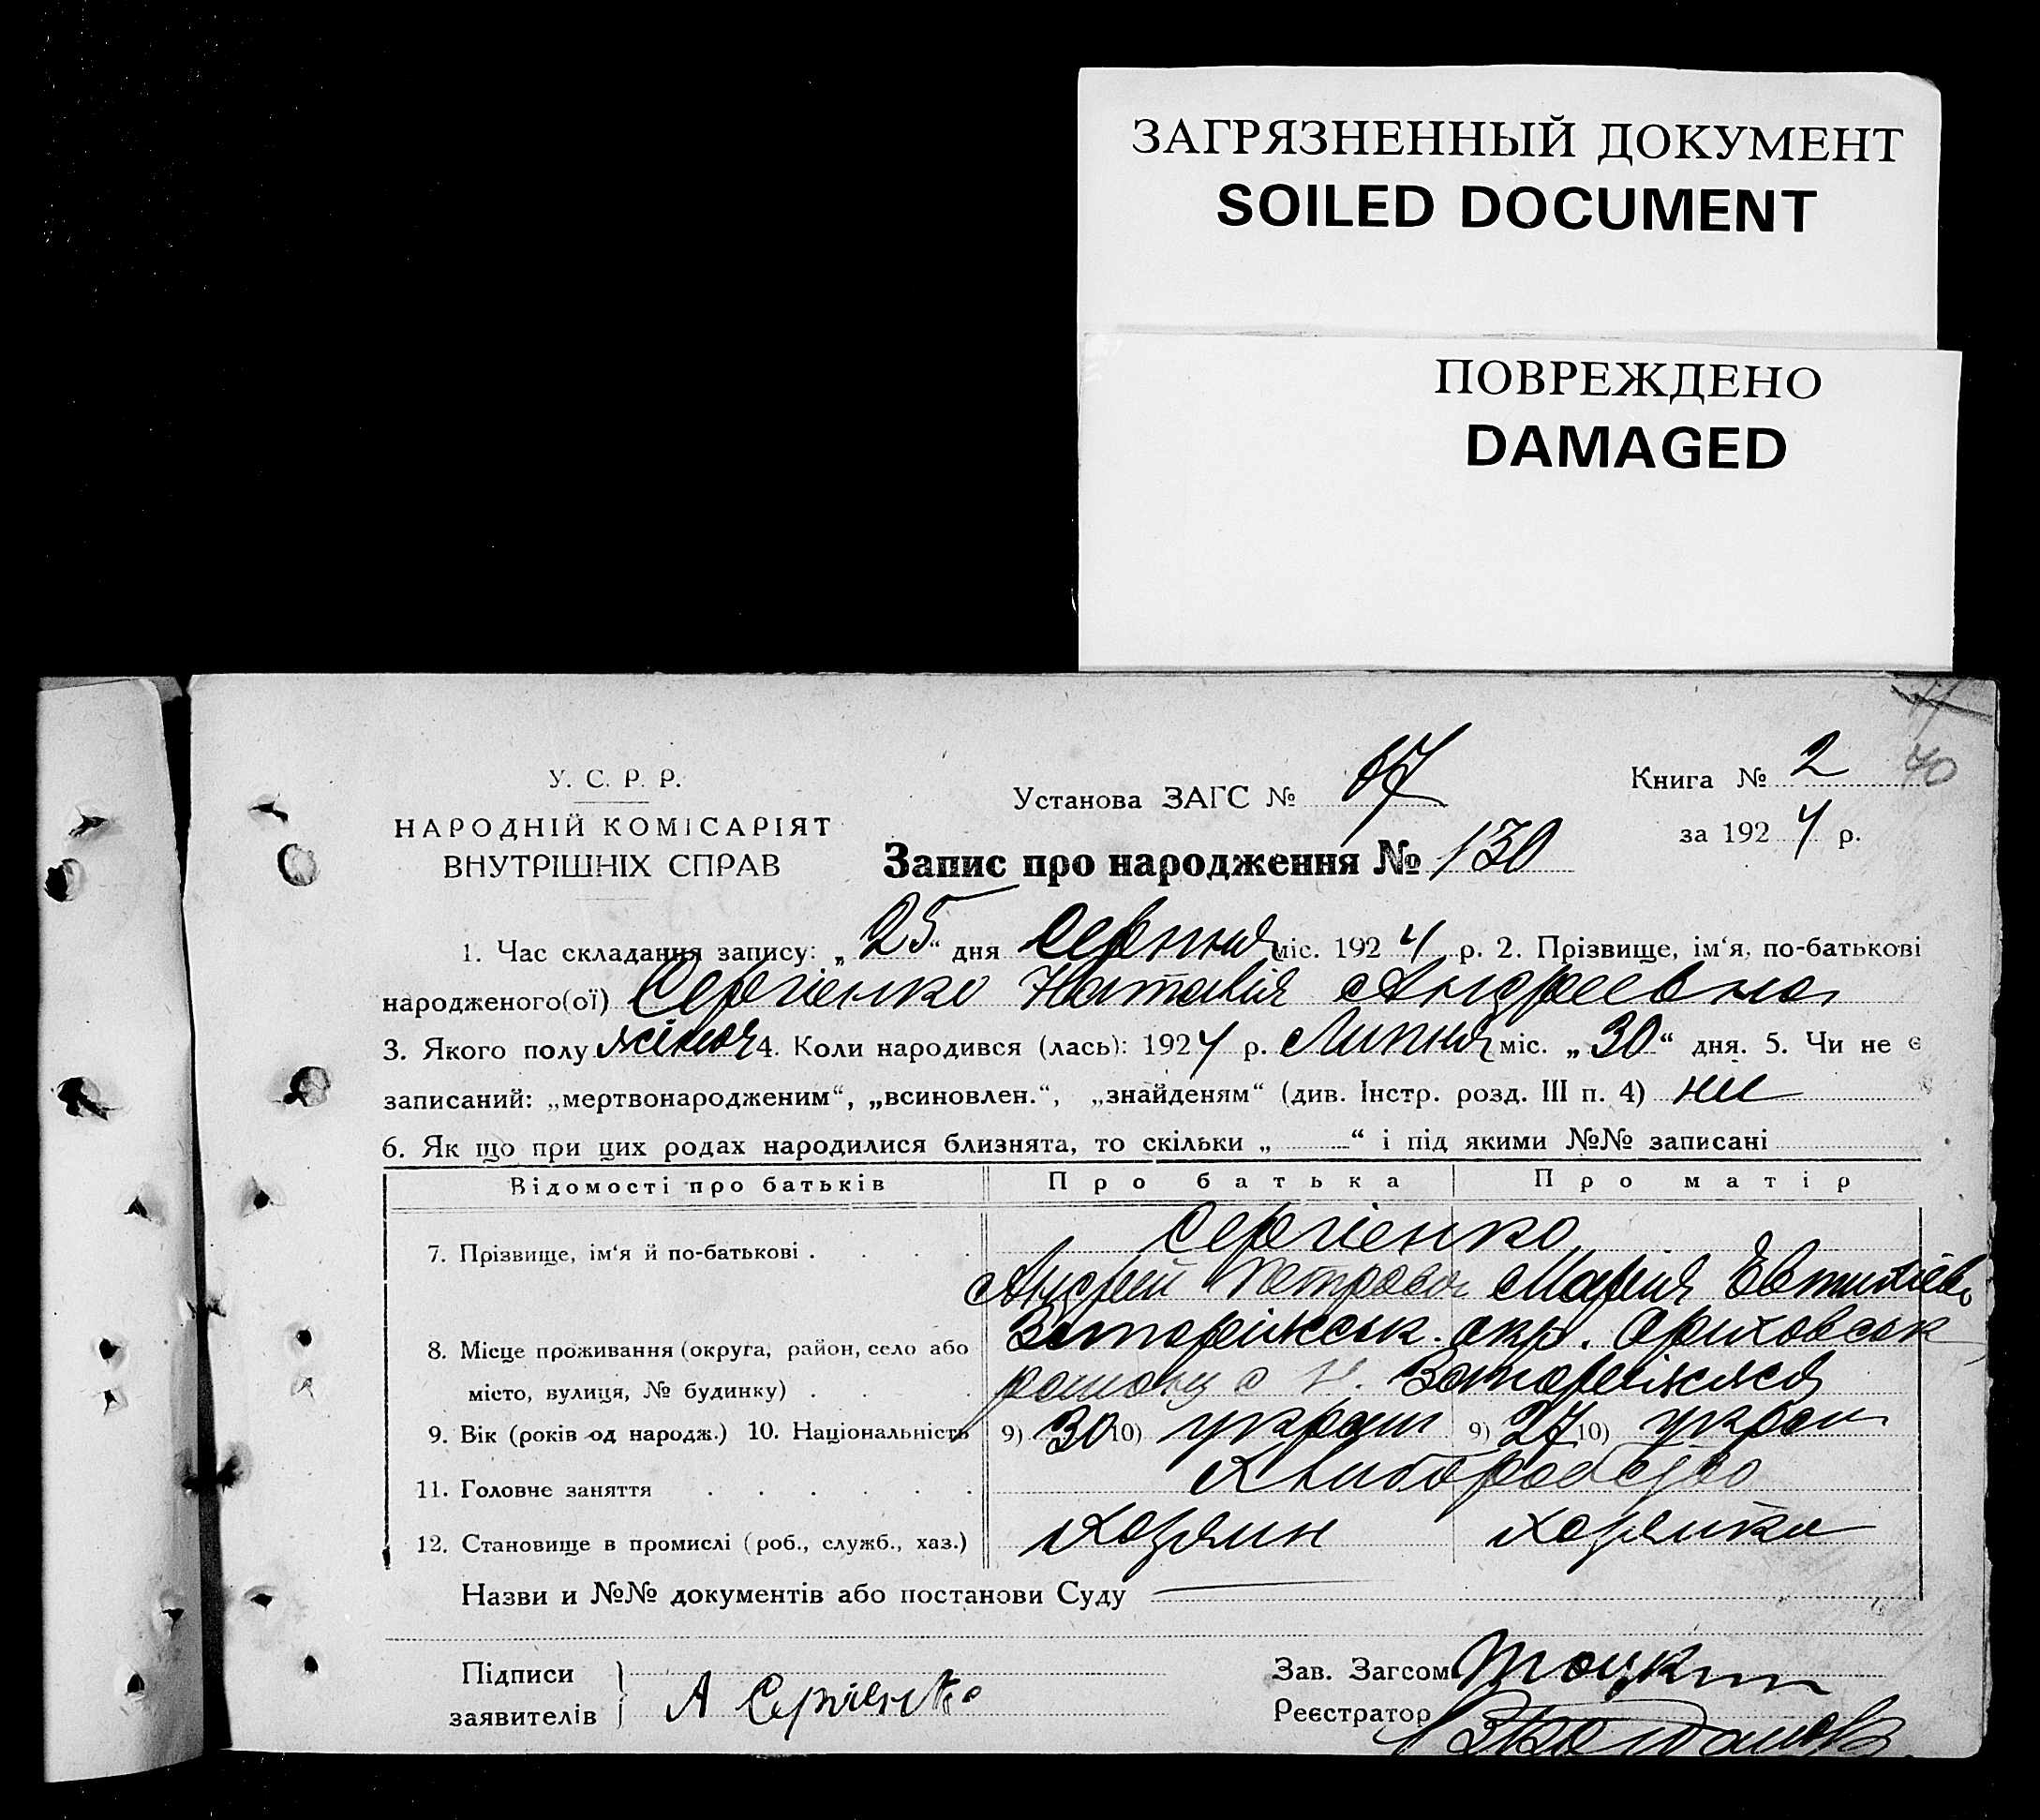 ЗАГРЯЗНЕННЫЙ ДОКУМЕНТ
SOILED DOCUMENT
ПОВРЕЖДЕНО
DAMAGED
40
У. С. Р. Р.
НАРОДНІЙ КОМІСАРІЯТ
ВНУТРІШНІХ СПРАВ
Установа ЗАГС №
Книга № 2
за 1924 р.
Запис про народження № 130
1. Час складання запису: „25“ дня Серпня міс. 1924 р. 2. Прізвище, ім‘я, по-батькові
народженого(ої) Сергієнко Наталія Андреевна
3. Якого полу жіноч 4. Коли народився (лась): 1924 р. Липня міс. „30“ дня. 5. Чи не є
записаний: „мертвонародженим“, „всиновлен.“, „знайденям“ (див. Інстр. розд. III п. 4) ни
6. Як що при цих родах народилися близнята, то скільки „ “ і під якими №№ записані
Відомості про батьків Про батька Про матір
7. Прізвище, ім‘я й по-батькові . . . . Сергієнко
Андрей Петрович Мария
8. Місце проживання (округа, район, село або Запоріжськ. окр. Оріховськ
місто, вулиця, № будинку) . . . району с Н. Запоріжжя
9. Вік (років од народж.) 10. Національність 9) 30 10) україн 9) 27 10) україн
11. Головне заняття . . . . . . Хліборобство
12. Становище в промислі (роб., служб., хаз.) Хозяин хозяйка
Назви и №№ документів або постанови Суду
Підписи
заявителів А Сергієнко
Зав. Загсом
Реєстратор